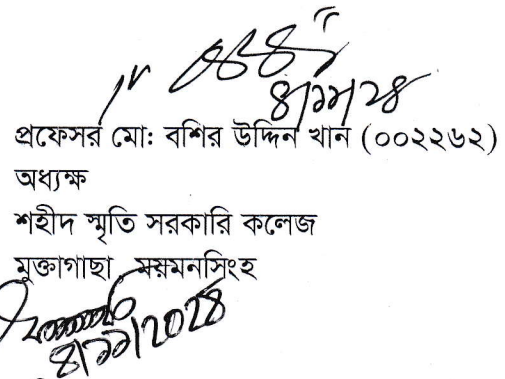 ৪/১১/২৪
প্রফেসর মো: বশির উদ্দিন খান (০০২২৬২)
অধ্যক্ষ
শহীদ স্মৃতি সরকারি কলেজ
মুক্তাগাছা ময়মনসিংহ
৪/১১/২০২৪